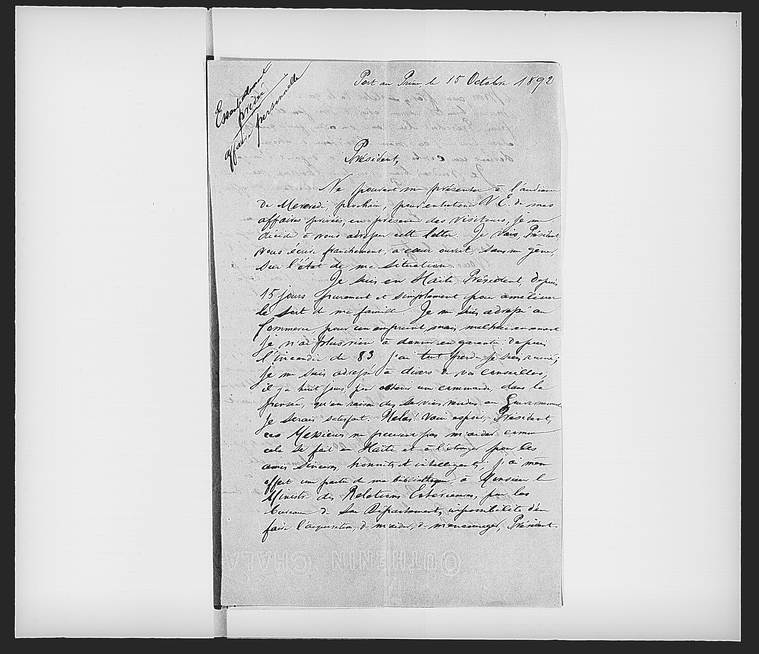 Essentiellement
privée
affaire personnelle
Port au Prince, le 15 Octobre 1892
Président,
Ne pouvant me présenter à l'audience
de Mercredi prochain, pour entretenir V. E. de mes
affaires privées, en présence des visiteurs, je me
décide à vous adresser cette lettre. Je vais, Président
vous écrire franchement, à cœur ouvert, sans me gêner,
sur l'état de ma situation.
Je suis en Haïti, Président, depuis
15 jours purement et simplement pour améliorer
le sort de ma famille. Je me suis adressé au
Commerce, pour un emprunt mais, malheureusement
je n'ai plus rien à donner en garantie depuis
l'incendie de 83 j'ai tout perdu, je suis ruiné;
je me suis adressé à divers de vos conseillers,
il y a huit jours, pour obtenir un commande dans la
pensée, qu'en raison des services rendus au Gouvernement
je serais satisfait. Hélas! vain espoir, Président,
ces Messieurs ne peuvent pas m'aider comme
cela se fait en Haïti et à l'étranger pour les
amis sincères, honnêtes et intelligents, j'ai
effert une partie de ma bibliothèque, à Monsieur le
Ministre des Relations Extérieures, pour les
bureaux de son Département, impossibilité d'en
faire l'acquisition, de m'aider, de m'encourager, Président.
OUTHENIN CHALA